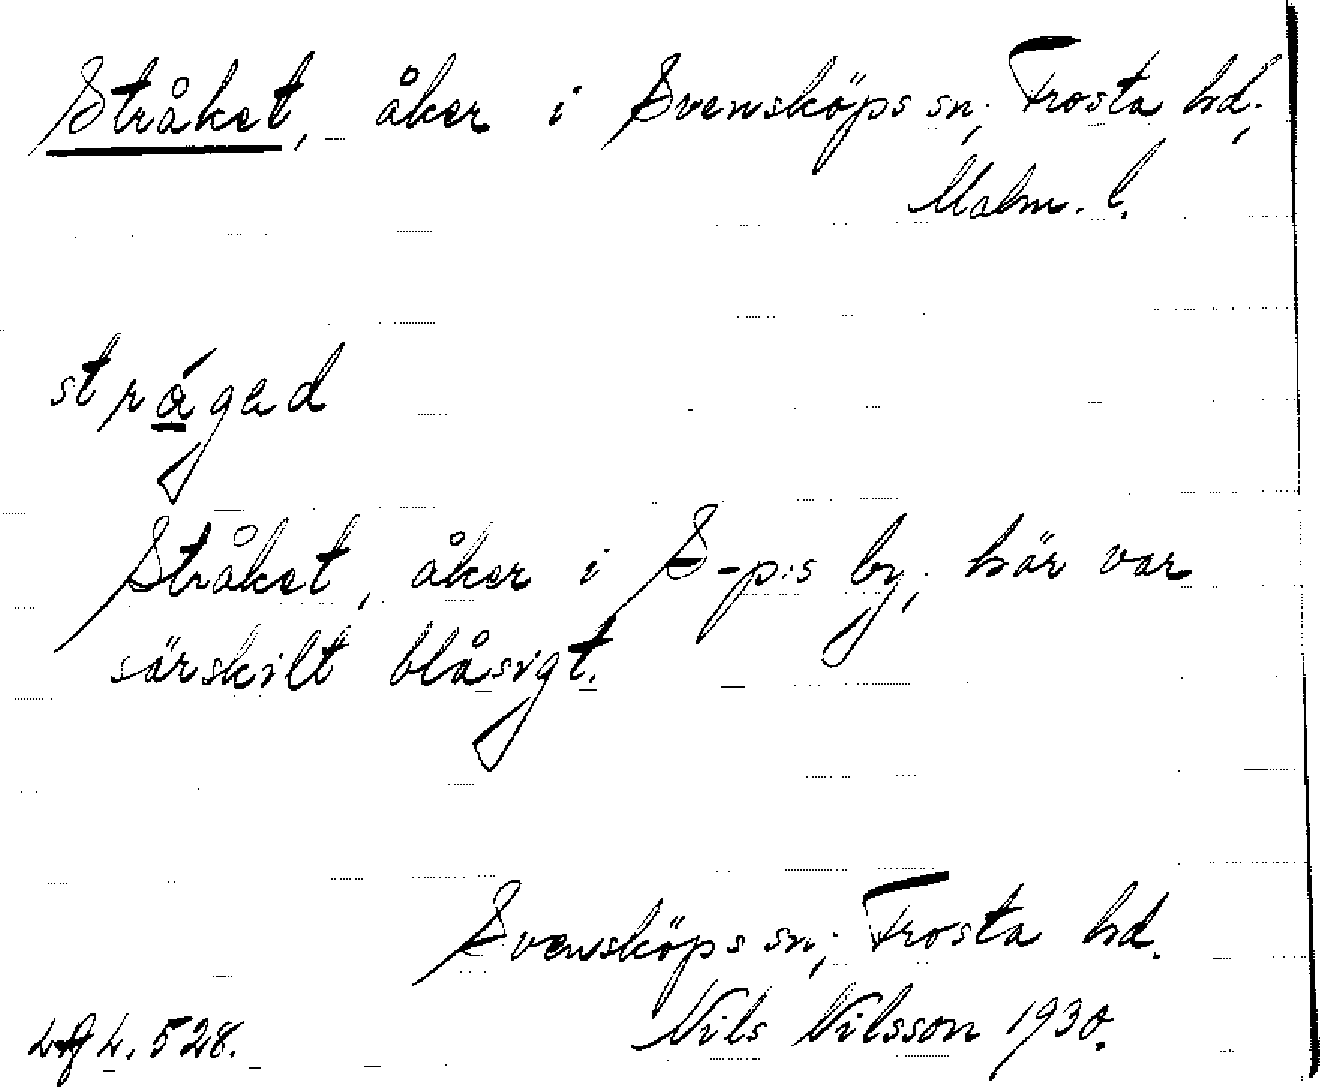 Stråket, åker i Svensköps sn; Frosta hd.;
Malm. l.
strágad
Stråket, åker i S-p:s by; här var
särskilt blåsigt.
Svensköps sn; Frosta hd.
4. 528. Nils Nilsson 1930.